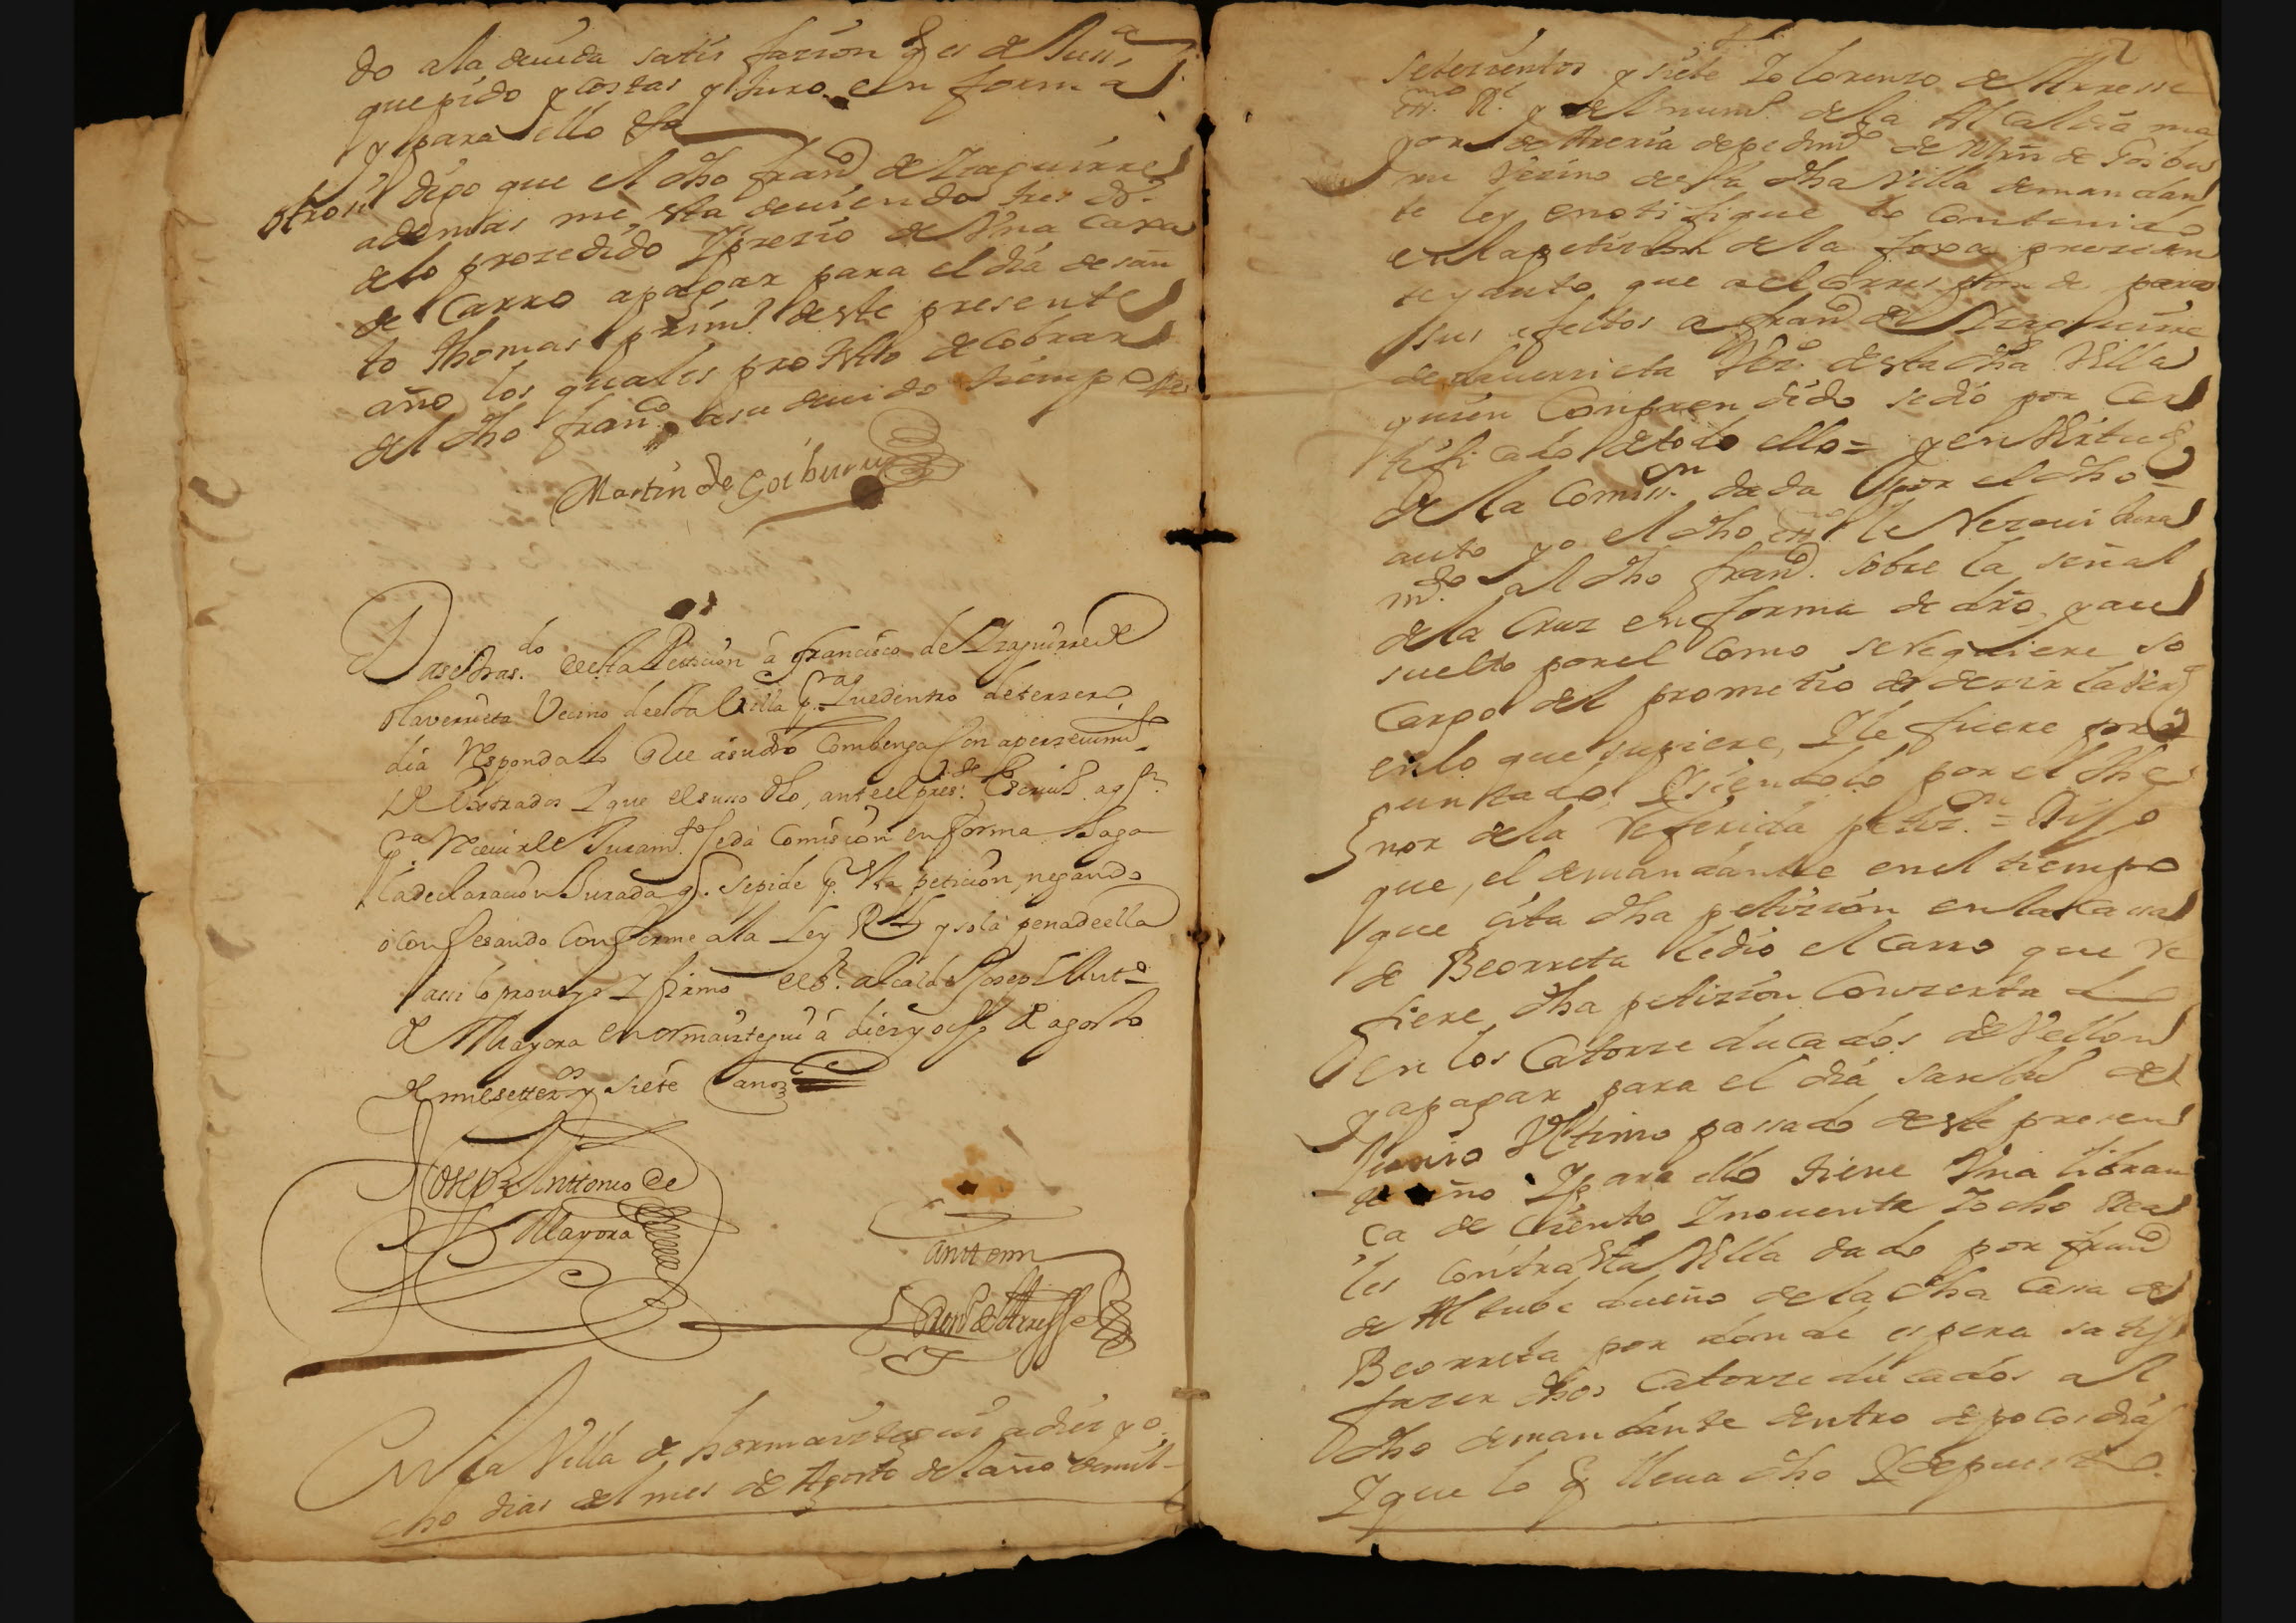 do ala deuida satisfazion q es de Juss.a
que pido y costas y Juro en forma
y para ello &a
otrosi digo que el dho fran.co de Yzaguirre
ademas me esta deuiendo tres d.s
de lo prozedido y prezio de Vna Caxa
de Carro apagar para el dia de san
to thomas prim.o deste presente
año los quales protesto de cobrar
del dho fran.co a su deuido tiempo
Martin de Goiburu
Dase tras.do de esta Petizion á francisco de Yzaguirre de
olaverrieta Vezino de esta Villa p.a que dentro de terzero
dia Responda lo que asu dro Combenga Con aperzeuim.to
de Estrados y que el suso dho, ante el pres.te Escriu.o aq.n
p.a Reciuirle Juram.to se da Comision en forma haga
la declarazion Jurada q. se pide p.r esta petizion, negando
o confesando Conforme ala Ley R.l y sola pena de ella
assi lo proueyo y firmo el s.r alcalde Joseph Ant.o
de Mayora en ormaiztegui á diez y ocho de agosto
de mil setez.os y siete años
Joseph Anttonio de
Mayora
Antt emi
Lorenzo de Arresse
En la Villa de hormaiztegui a diez y o
cho dias del mes de Agosto del año de mil
2
setezientos y siete Yo lorenzo de Arresse
ess.no R.l y del num.o de la Alcaldia ma
yor de Areria de pedim.to de Min de Goibu
ru Vezino desta dha Villa demandan
te ley e notifique lo Contenido
en la petizion de la foxa prezeden
te y auto que a el Corresponde para
sus efectos a fran.co de Yzaguirre
de olauerrieta Vez.o desta dha Villa
quien Comprendido se dio por Cer
tificado de todo ello = y en Virtud
de la Comiss.on dada por el dho
auto yo el dho ess.no le Rezeui Jura
m.to al dho fran.co sobre la señal
de la Cruz en forma de dro y auel
suelto por el Como se Requiere so
Cargo del prometio de dezir la Ver.d
en lo que supiere, y le fuere pre
guntado y siendolo por el the
nor de la Referida petiz.on = Dijo
que, el demandante en el tiempo
que cita dha petizion en la Cassa
de Beorreta le dio el Carro que Re
fiere dha petizion Conzertado
en los Catorze ducados de Vellon
y apagar para el dia san Juº de
Junio Vltimo passado deste presen
te año y para ello tiene Vna libran
ça de Ciento y nouenta y ocho Rea
les contra esta Villa dado por fran.co
de Altube dueño de la dha Cassa de
Beorreta por donde espera satis
fazer dhos Catorze ducados al
dho demandante dentro de pocos dias
y que lo q lleua dho y depuesto